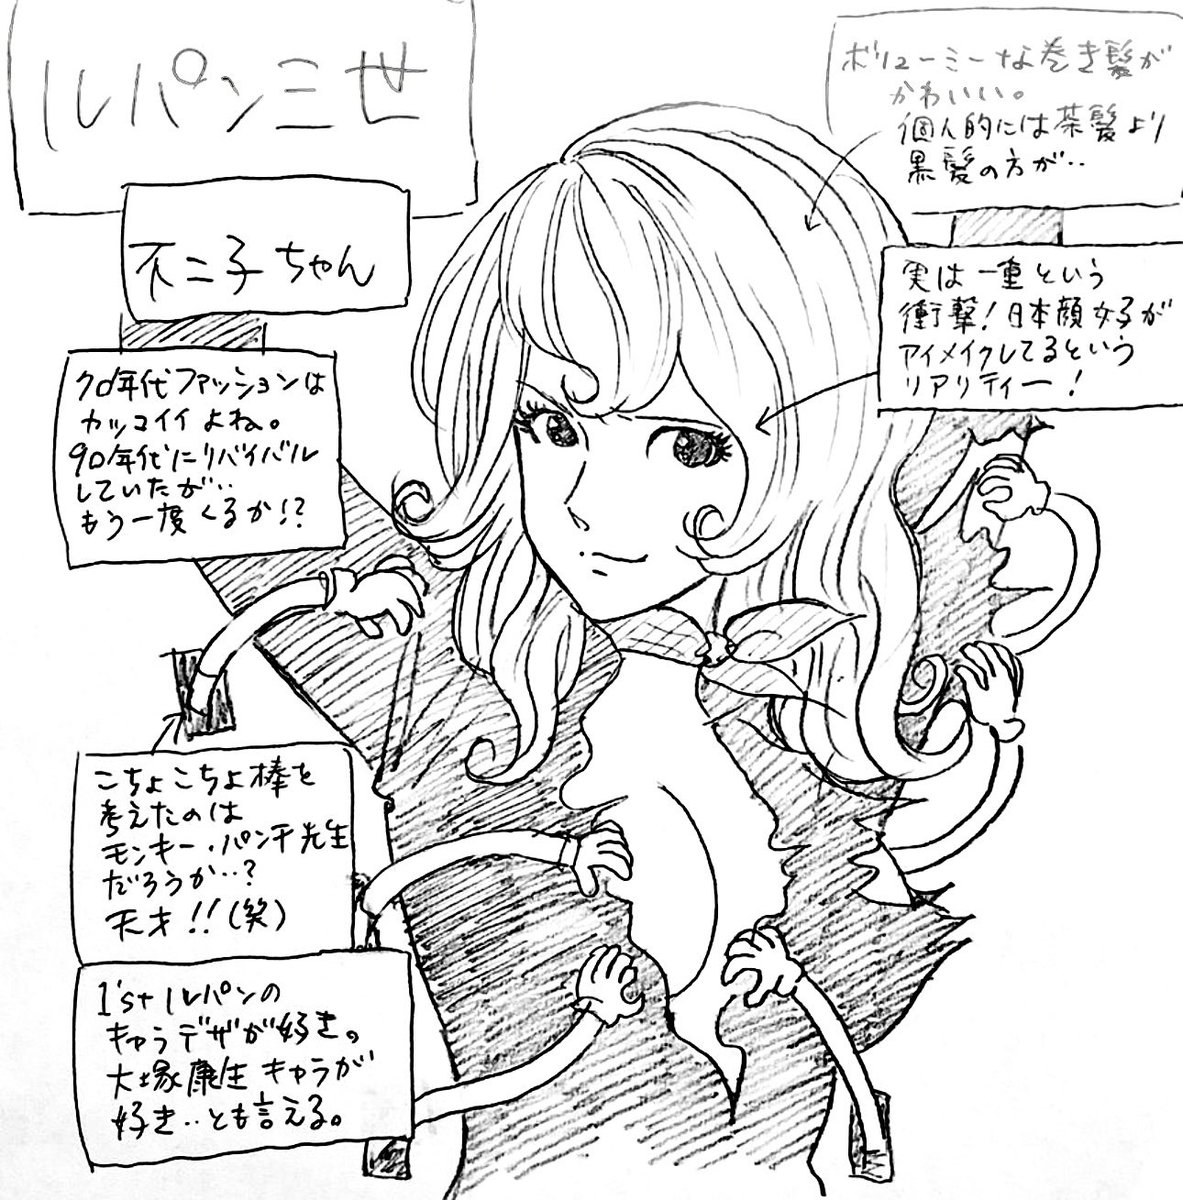 ルパン三世
不二子ちゃん
ボリューミーな巻き髪が
かわいい。
個人的には茶髪より
黒髪の方が‥
実は一重という
衝撃!日本顔女子が
アイメイクしてるという
リアリティー!
70年代ファッションは
カッコイイよね。
90年代にリバイバル
していたが‥
もう一度くるか!?
こちょこちょ棒を
考えたのは
モンキー・パンチ先生
だろうか‥?
天才!!(笑)
1'st ルパンの
キャラデザが好き。
大塚康生キャラが
好き‥とも言える。